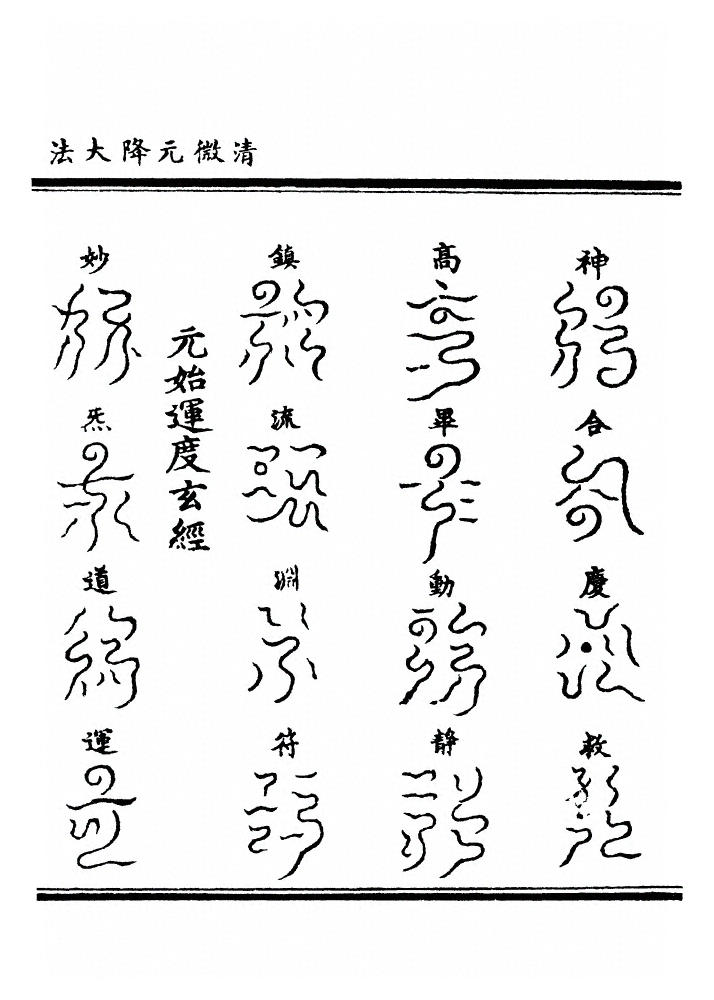 清微元降大法
神合慶救
高畢動靜
鎮流淵符
元始運度玄經
妙炁道運